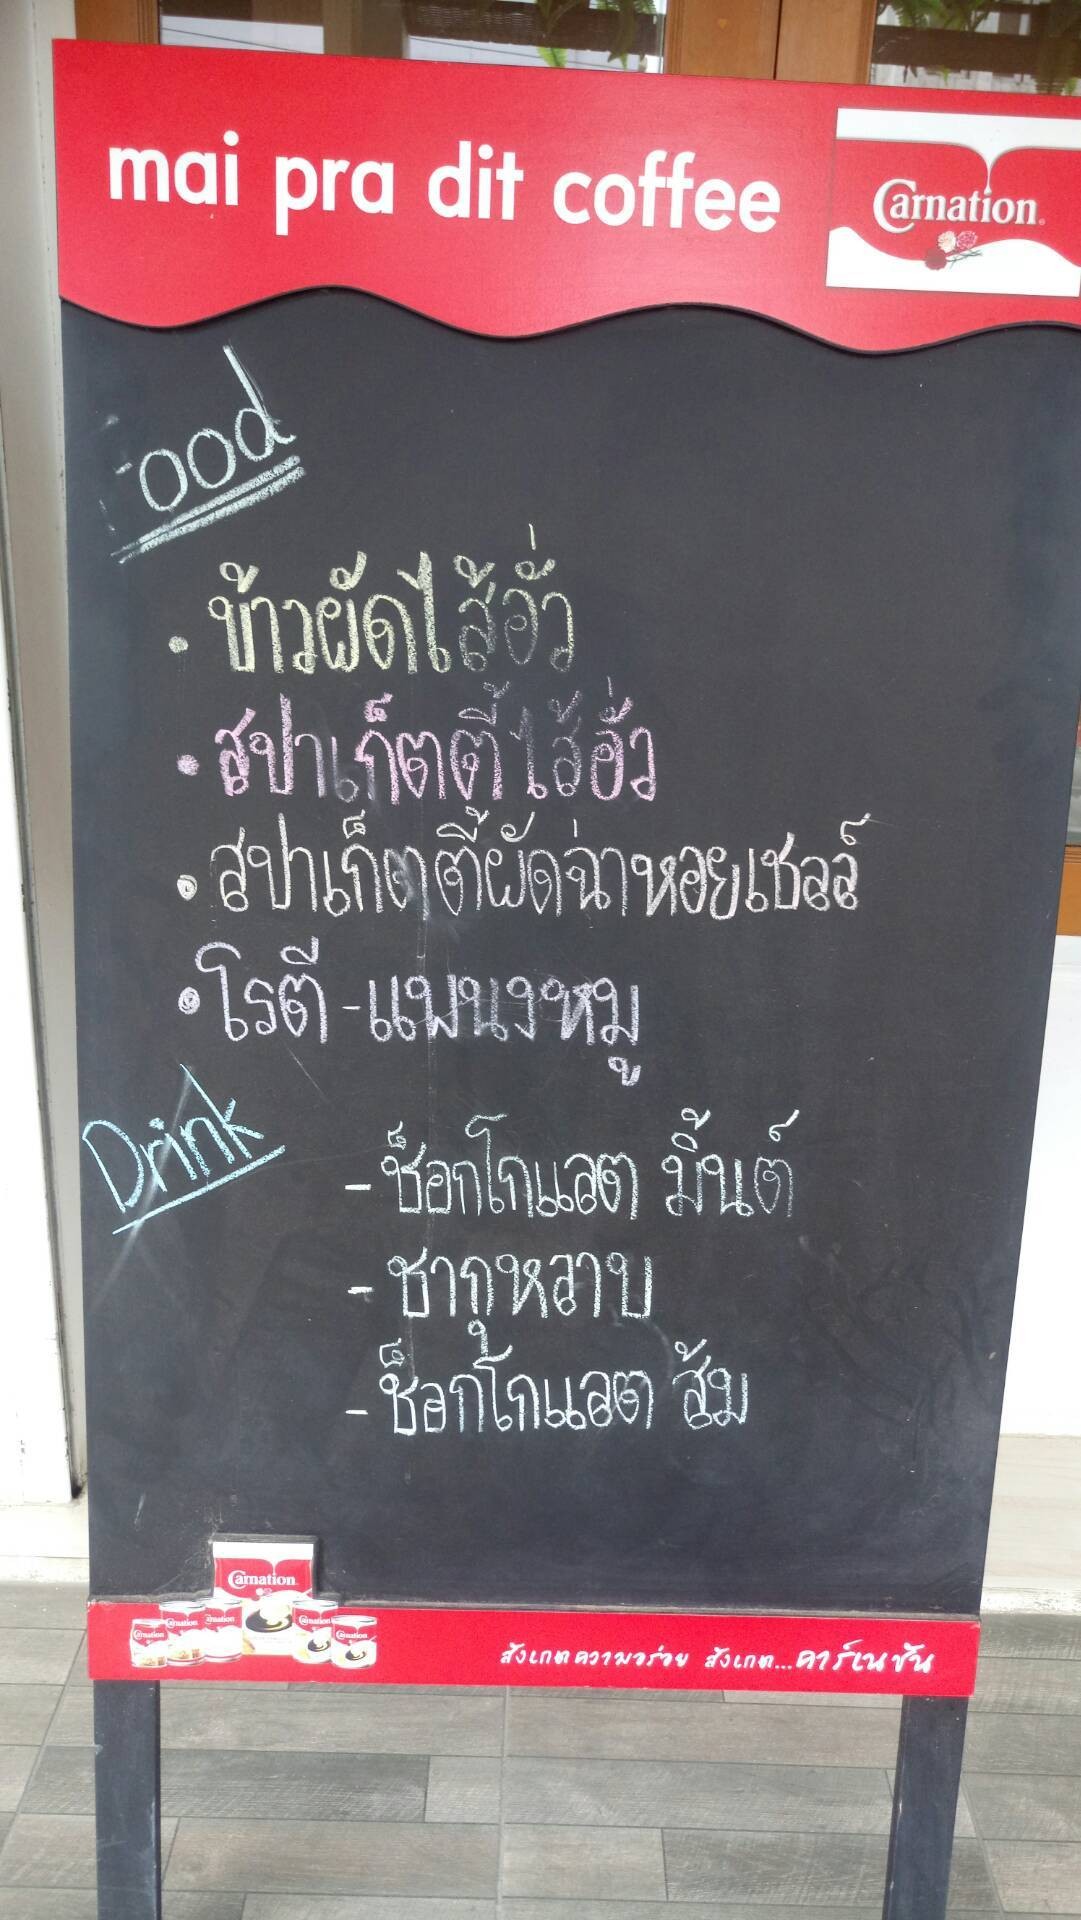 mai pra dit coffee
Carnation
Food
• ข้าวผัดไส้อั่ว
• สปาเก็ตตี้ไส้อั่ว
• สปาเก็ตตี้ผัดฉ่าหอยเชลล์
• โรตี - แพนงหมู
Drink
- ช็อกโกแลต มิ้นต์
- ชากุหลาบ
- ช็อกโกแลต ส้ม
Carnation
Carnation Carnation Carnation Carnation Carnation
สังเกตความอร่อย สังเกต...คาร์เนชัน